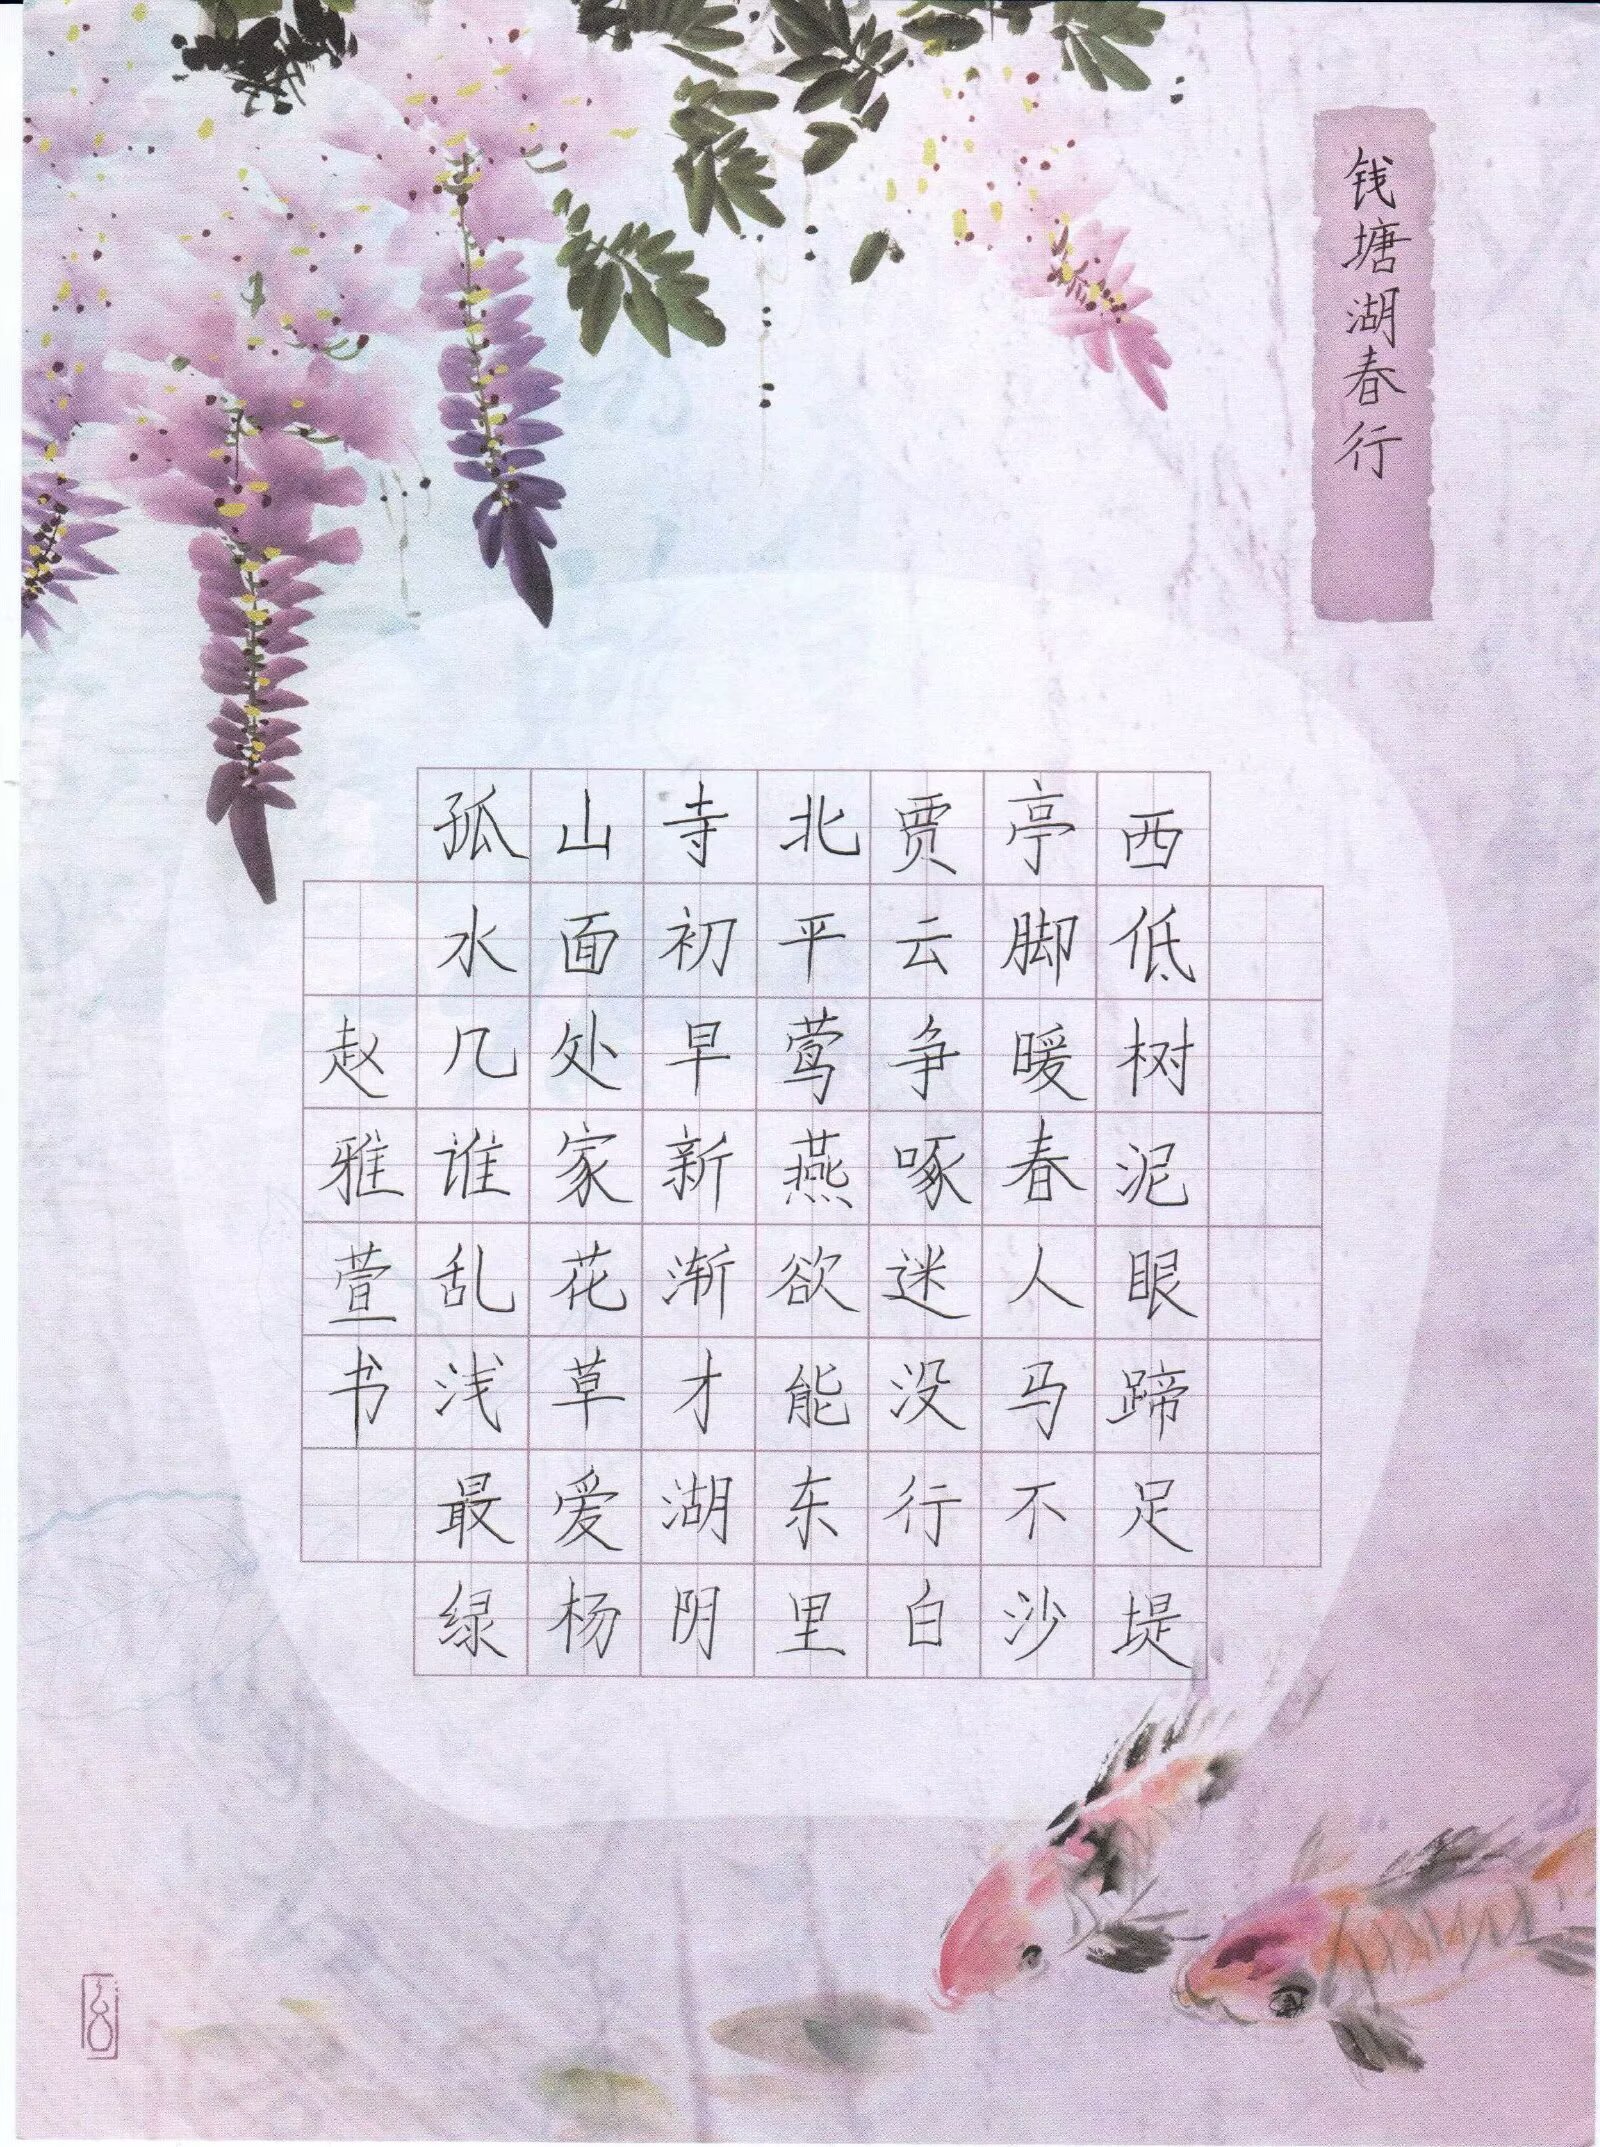 钱塘湖春行
孤山寺北贾亭西
水面初平云脚低
几处早莺争暖树
谁家新燕啄春泥
乱花渐欲迷人眼
浅草才能没马蹄
最爱湖东行不足
绿杨阴里白沙堤
赵雅萱书